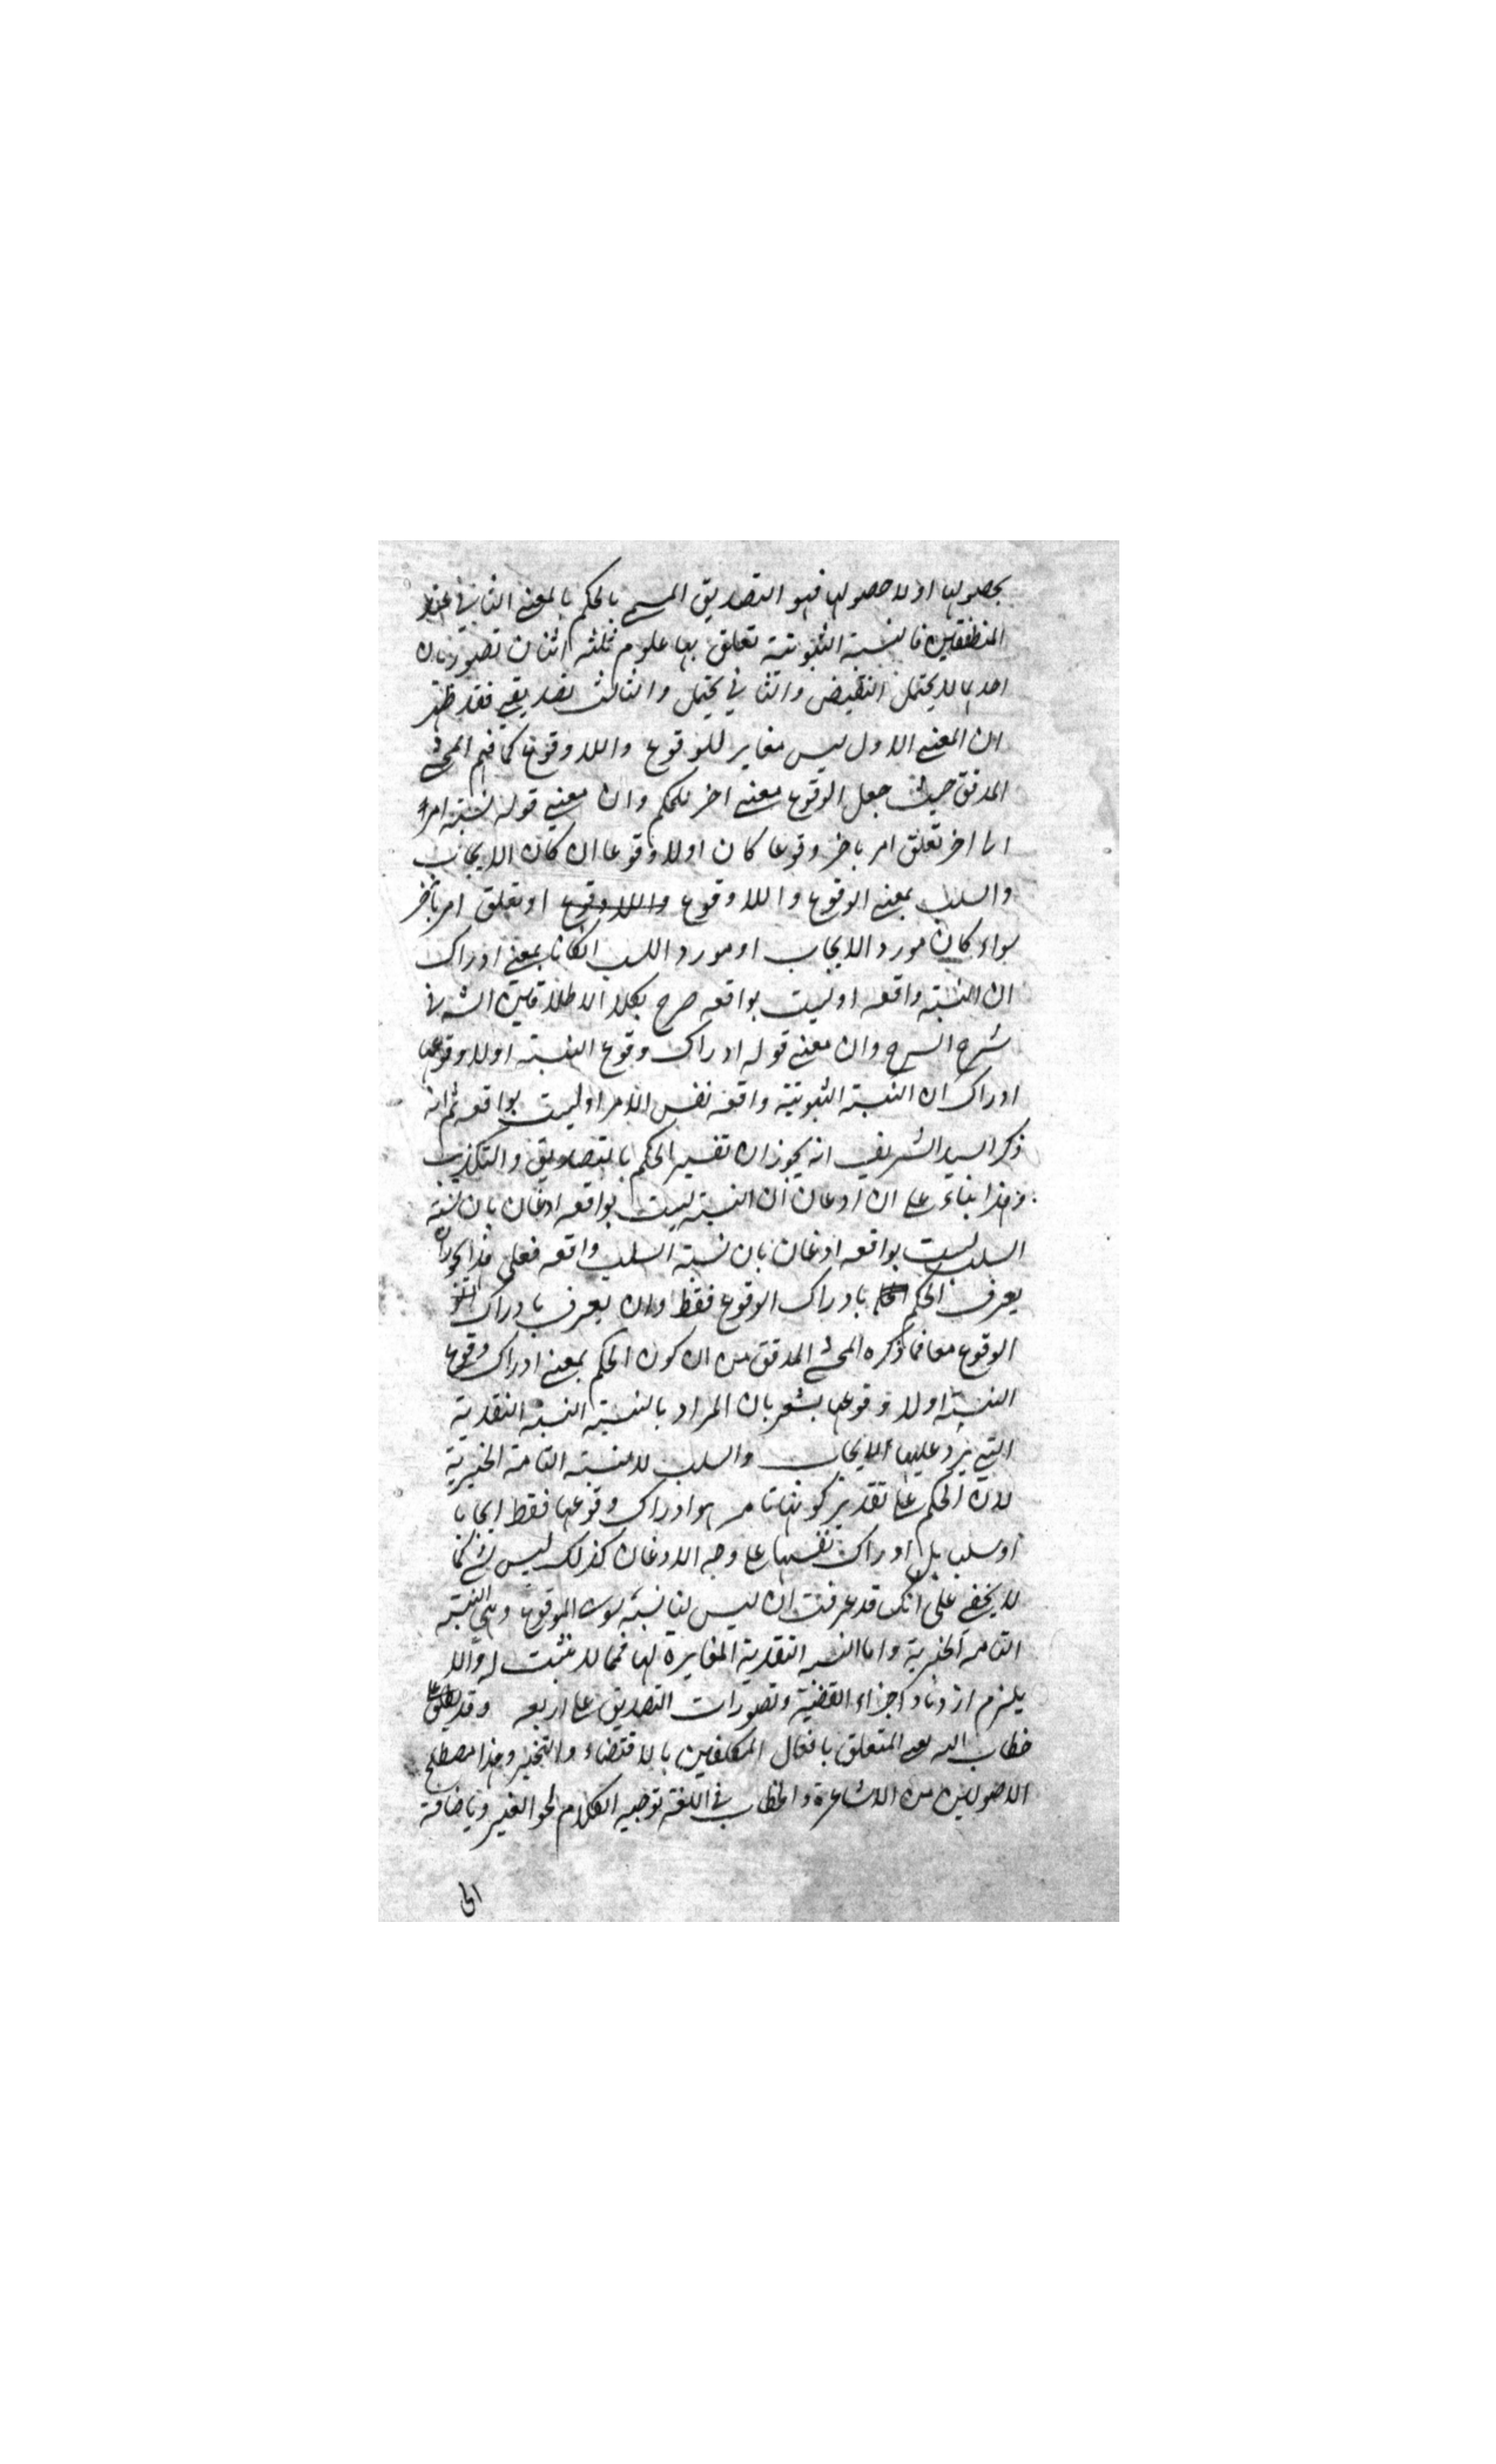 بحصولها او لا حصولها فهو التصديق المسمى بالحكم بالمعنى الثاني عند
المنطقيين فالنسبة الثبوتية تعلق بها علوم ثلثه اثنان تصوريان
احدهما لا يحتمل النقيض والثاني يحتمل والثالث تصديقي فقد ظهر
ان المعنى الاول ليس مغاير للوقوع واللاوقوع كما فهم المحشى
المدقق حيث جعل الوقوع معنى اخر للحكم وان معنى قوله نسبة امر
الى اخر تعلق امر باخر وقوعا كان اولا وقوعا ان كان الايجاب
والسلب بمعنى الوقوع واللاوقوع واللاوقوع او تعلق امر باخر
سواء كان مورد الايجاب او مورد السلب انكانا بمعنى ادراك
ان النسبة واقعه او ليست بواقعه صرح بكلا الاطلاقين الش في
شرح الشرح وان معنى قوله ادراك وقوع النسبة اولا وقوعها
ادراك ان النسبة الثبوتية واقعه نفس الامر او ليست بواقعه ثم انه
ذكر السيد الشريف انه يجوز ان تفسير الحكم بالتصديق والتكذيب
وهذا بناء على ان اذعان ان النسبة ليست بواقعه اذعان بان نسبة
السلب ليست بواقعه اذعان بان نسبة السلب واقعه فعلى هذا يجوز ان
يعرف الحكم بادراك الوقوع فقط وان يعرف بادراك
الوقوع معا فما ذكره المحشى المدقق من ان كون الحكم بمعنى ادراك وقوع
النسبة اولا وقوعها يشعر بان المراد بالنسبة النسبة التقديية
التي يرد عليها الايجاب والسلب لا النسبة التامة الخبرية
لان الحكم على تقدير كونها تامه هو ادراك وقوعها فقط ايجابا
او سلب بل ادراك نفسها على وجه الاذعان كذلك ليس بشئ كما
لا يخفى على انك قد عرفت ان ليس لنا نسبة سوى الوقوع وهى النسبة
التامه الخبرية واما النسبه التقديية المغايرة لها فمما لا تثبت له والا
يلزم ازدياد اجزاء القضية وتصورات التصديق على اربعه وقد يطلق على
خطاب الله تعه المتعلق بافعال المكلفين بالاقتضاء والتخيير وهذا مصطلح
الاصوليين من الاشاعرة والخطاب في اللغة توجيه الكلام نحو الغير وباضافة
الى